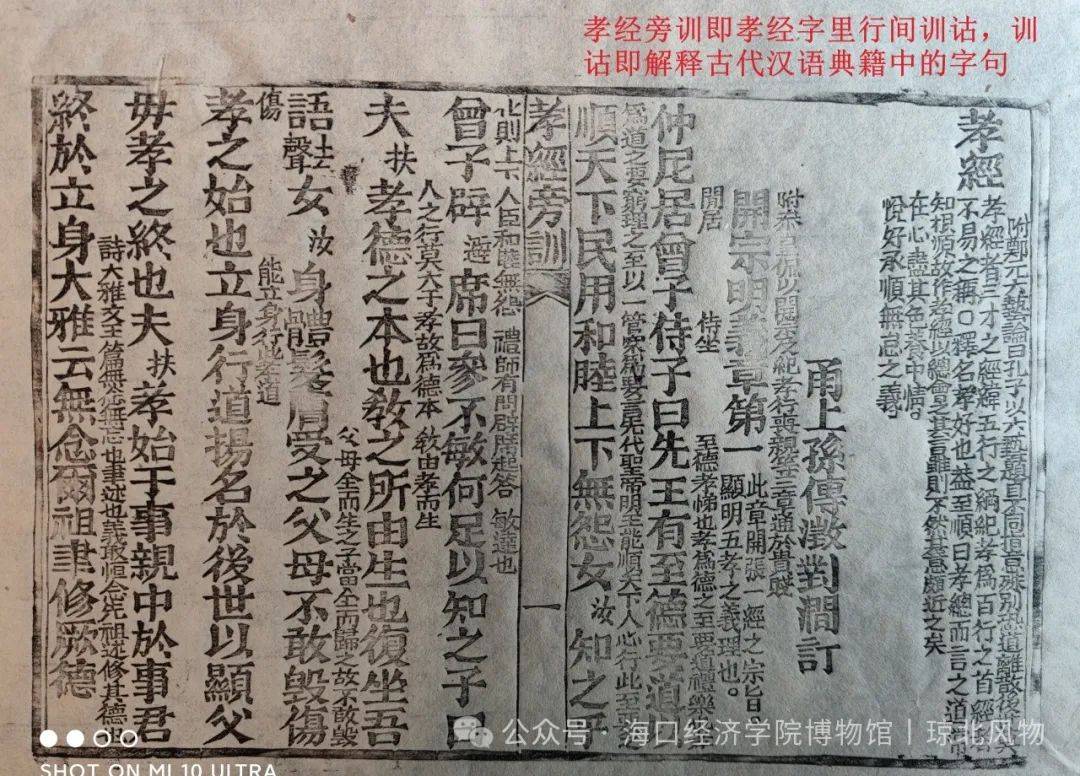 孝经旁训即孝经字里行间训诂，训
诂即解释古代汉语典籍中的字句
孝經
孝經者三才之經緯五行之綱紀孝爲百行之首經
不易之稱○釋名孝好也
至順曰孝總而言之道
知根源故作孝經以總會之
在心盡其色養中情
悅好承順無怠之義
甬上孫傳澂對澗訂
開宗明義章第一
此章開張一經之宗旨
顯明五孝之義理也。
閒居
侍坐
仲尼居曾子侍子曰先王有至德要道
至德孝悌也孝爲德之至要道禮樂
順天下民用和睦上下無怨女汝知之乎
孝經旁訓
一
人臣和睦無怨
禮師有問辟席起答
敏達也
曾子辟避席曰參不敏何足以知之子曰
人之行莫大于孝故爲德本
教由孝而生
夫扶孝德之本也教之所由生也復坐吾
語去聲女汝身體髮膚受之父母不敢毀傷
父母全而生之子當全而歸之故不敢毀
傷
能立身行此孝道
孝之始也立身行道揚名於後世以顯父
毋孝之終也夫扶孝始于事親中於事君
詩大雅文王篇無念無忘也聿述也義敢恒念先祖述修其德
終於立身大雅云無念爾祖聿修厥德
公众号·海口经济学院博物馆｜琼北风物
SHOT ON MI 10 ULTRA